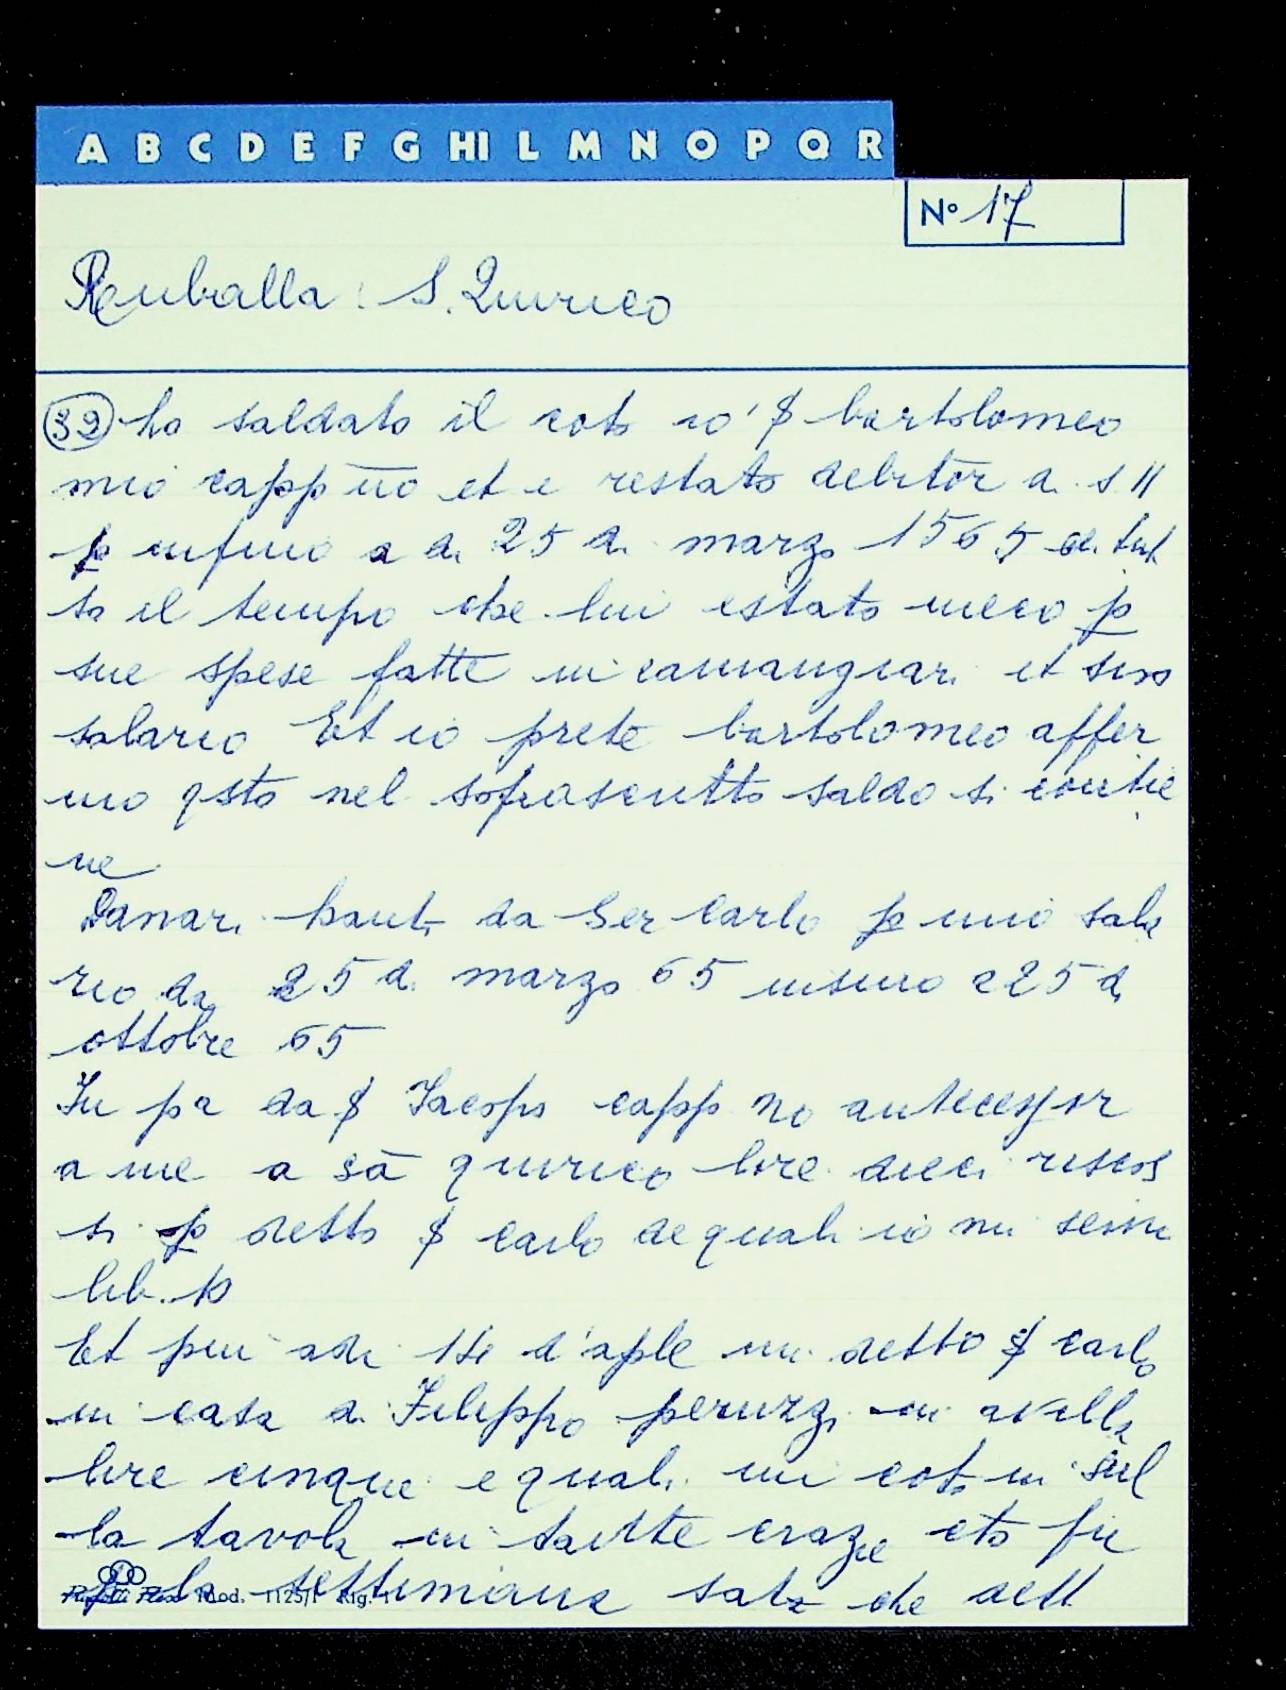 A B C D E F G HI L M N O P Q R
N° 17
Ruballa: S. Quirico
39 ho saldato il coto co' $ bartolomeo
mio capp no et e restato debitor di s 11
p infino a di 25 di marzo 1565 di tut
to il tempo che lui estato meco p
sue spese fatte in camangiari et suo
salario Et io prete bartolomeo affer
mo qsto nel soprascritto saldo si contie
ne
Danari hauti da Ser Carlo p mio sala
rio da 25 di marzo 65 insino a 25 di
ottobre 65
In pa da $ Iacopo capp no antecessor
a me a sā quirico lire dieci riscos
si p detto $ carlo de quali io mi servi
lib. 10
Et piu adi d'aple mi detto $ carlo
in casa di Filippo peruzzi in avella
lire cinque e quali mi coto in sul
la tavola in tante crazie eto fu
p la settimana sata che dett
Mod. 1125/1 Rig. 1